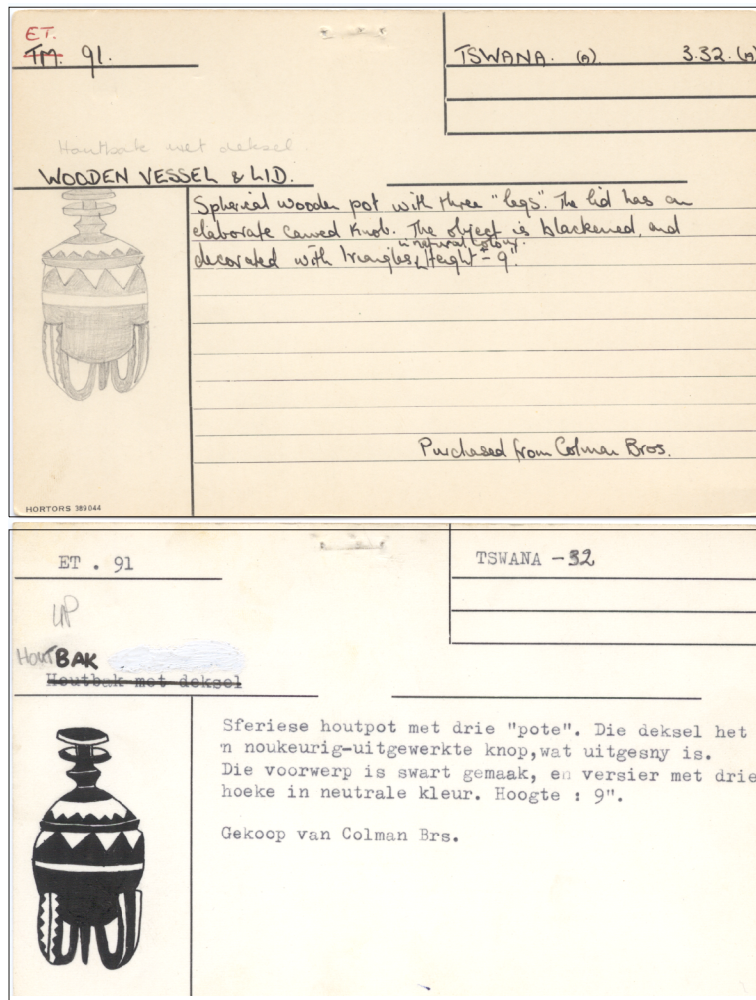 ET.
TM. 91.
TSWANA. (A) 3.32. (A)
Houtbak met deksel
WOODEN VESSEL & LID.
Spherical wooden pot with three "legs". The lid has an
elaborate carved knob. The object is blackened, and
in natural colour.
decorated with triangles, Height - 9".
Purchased from Colman Bros.
HORTORS 389044
ET . 91
TSWANA - 32
UP
HOUTBAK
Houtbak met deksel
Sferiese houtpot met drie "pote". Die deksel het
'n noukeurig-uitgewerkte knop,wat uitgesny is.
Die voorwerp is swart gemaak, en versier met drie
hoeke in neutrale kleur. Hoogte : 9".
Gekoop van Colman Brs.